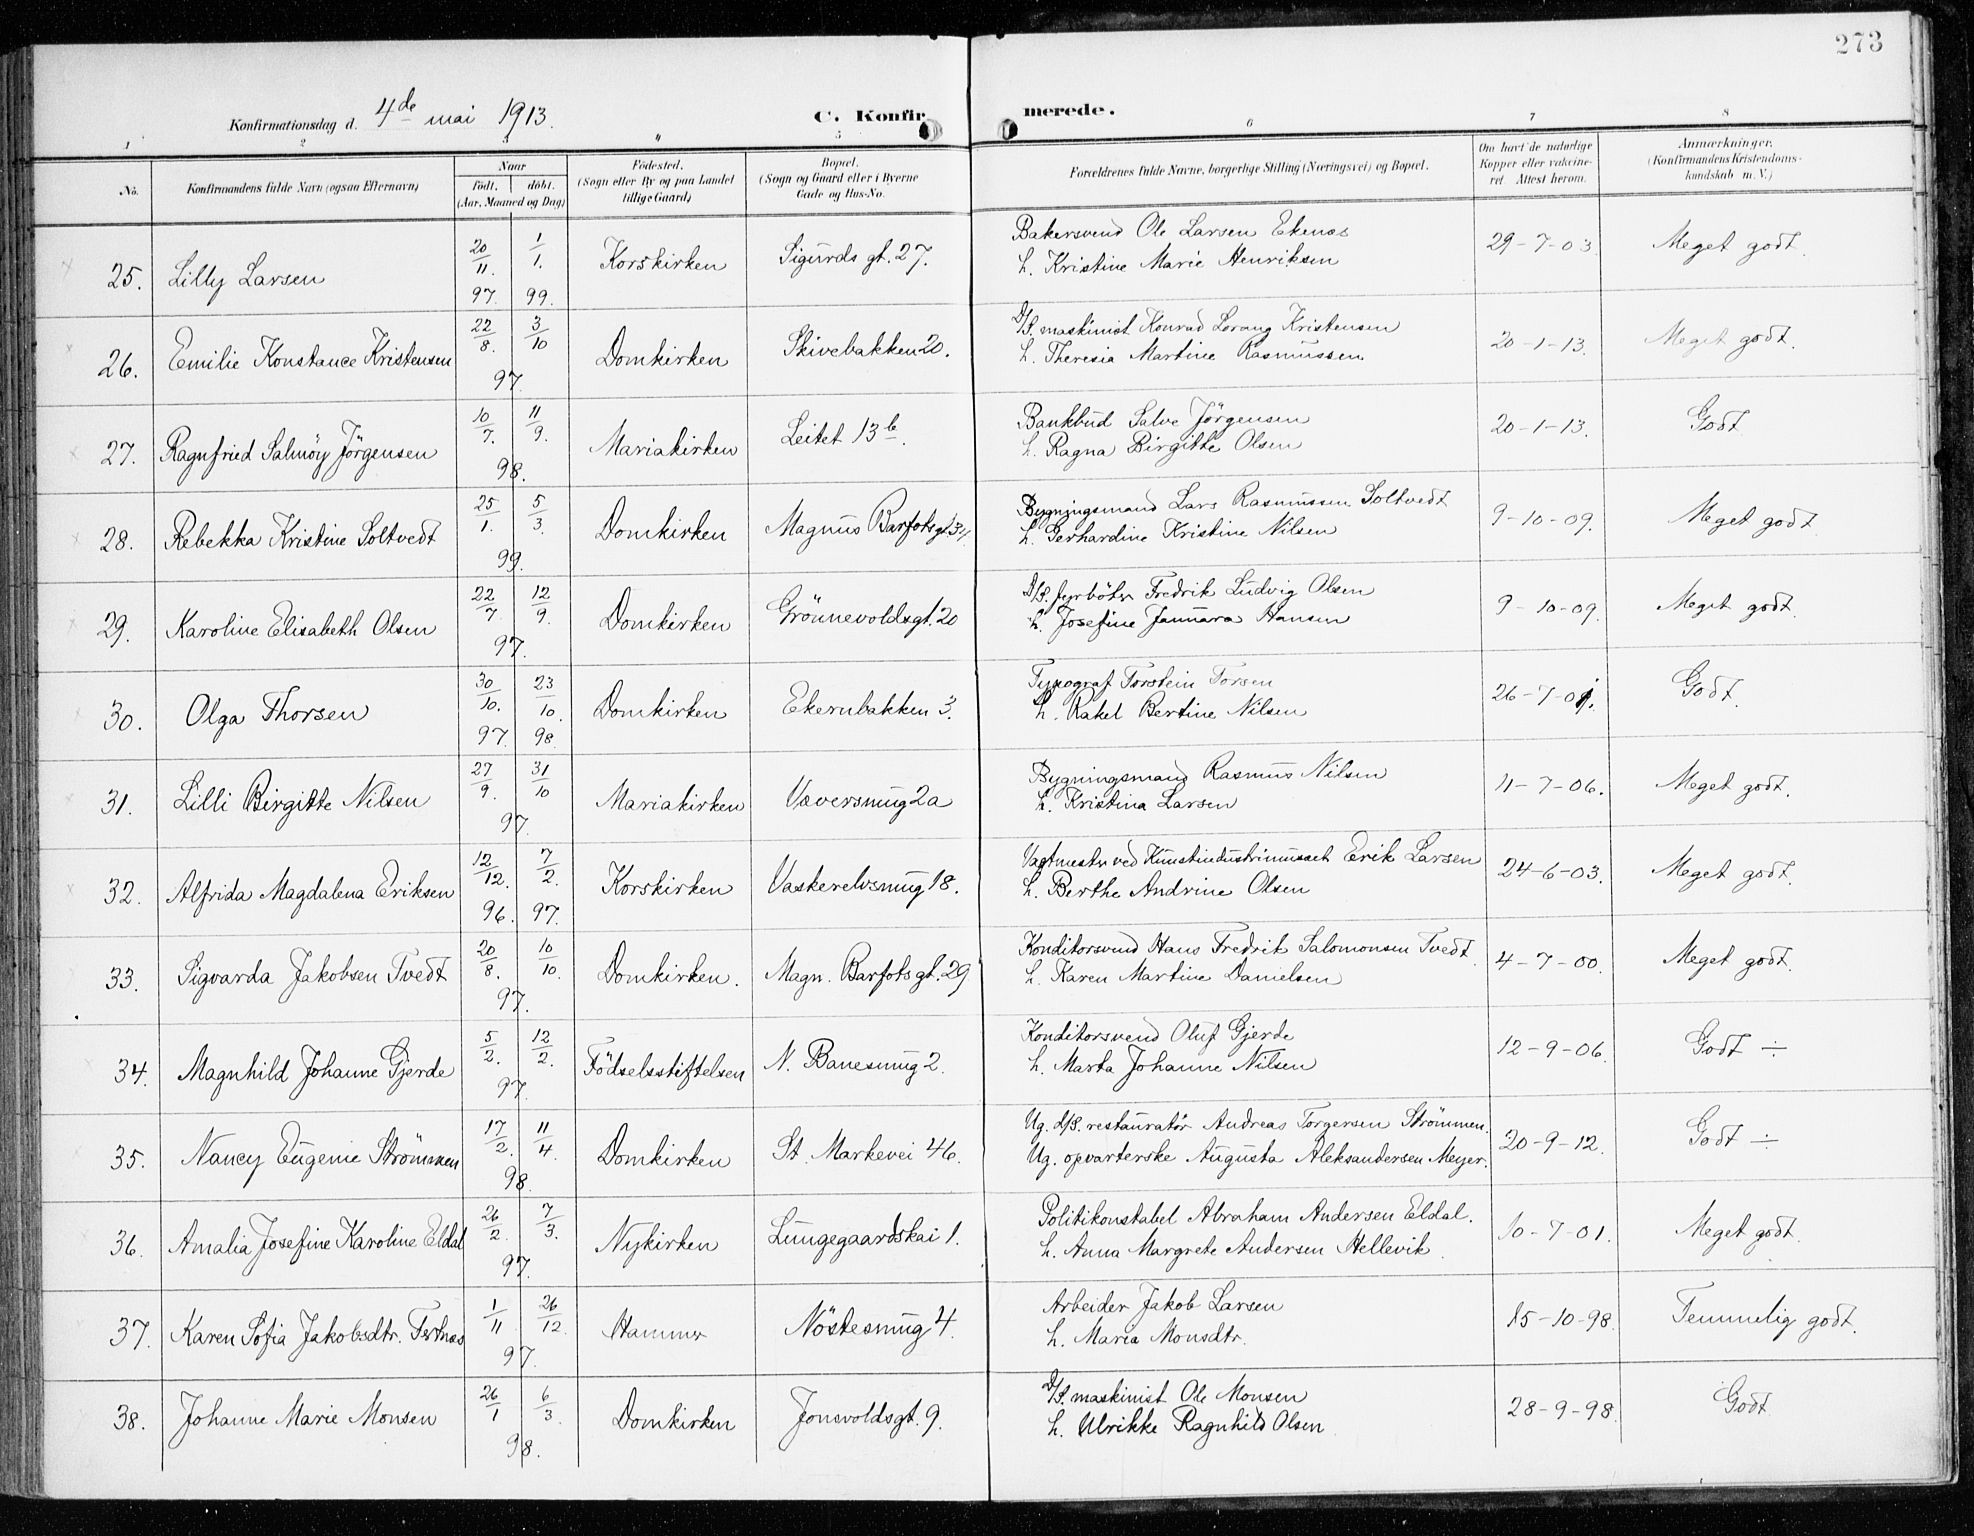 273
Konfirmationsdag d. 4de mai 1913. C. Konfirmerede.
1 2 3 " 5 6 7 8
No. Konfirmandens fulde Navn (ogsaa Efternavn) Naar født. døbt. (Aar, Maaned og Dag) Fødested. (Sogn eller By og paa Landet tillige Gaard) Bopæl. (Sogn og Gaard eller i Byerne Gade og Hus-No. Forældrenes fulde Navne, borgerlige Stilling (Næringsvei) og Bopæl. Om havt de naturlige Kopper eller vakcineret. Attest herom. Anmærkninger. (Konfirmandens Kristendomskundskab m. V.)
25. Lilly Larsen 20/11. 97. 1/1. 99. Korskirken Sigurds gt. 27. Bakersvend Ole Larsen Ekenæs 29-7-03 Meget godt.
h. Kristine Marie Henriksen
26. Emilie Konstance Kristensen 22/8. 3/10 97. Domkirken Skivebakken 20. D/S. maskinist Konrad Lorang Kristensen 20-1-13. Meget godt.
h. Theresia Martine Rasmussen
27. Ragnfried Salmöy Jörgensen 10/7. 11/9. 98. Mariakirken Leitet 13b. Bankbud Salve Jörgensen 20-1-13. Godt
h. Ragna Birgitte Olsen
28. Rebekka Kristine Soltvedt 25/1. 5/3. 99. Domkirken Magnus Barfotsgt. Bygningsmand Lars Rasmussen Soltvedt 9-10-09. Meget godt
h. Gerhardine Kristine Nilsen
29. Karoline Elisabeth Olsen 22/7. 12/9. 97. Domkirken Grönnevoldsgt. 20 D/S. fyrböter Fredrik Ludvig Olsen 9-10-09. Meget godt.
h. Josefine Januara Hansen
30. Olga Thorsen 30/10. 97. 23/10. 98. Domkirken Ekernbakken 3. Typograf Torstein Torsen 26-7-01. Godt.
h. Rakel Bertine Nilsen
31. Lilli Birgitte Nilsen 27/9. 31/10 97. Mariakirken Væversmug 2a Bygningsmand Rasmus Nilsen 11-7-06. Meget godt.
h. Kristina Larsen
32. Alfrida Magdalena Eriksen 12/12. 96. 7/2. 97. Korskirken Vaskerelvsmug 18. Vagtmester ved Kunstindustrimuseet Erik Larsen 24-6-03. Meget godt.
h. Berthe Andrine Olsen
33. Sigvarda Jakobsen Tvedt 20/8. 10/10. 97. Domkirken. Magn. Barfots gt. 29 Konditorsvend Hans Fredrik Salomonsen Tvedt 4-7-00. Meget godt.
h. Karen Martine Danielsen
34. Magnhild Johanne Gjerde 5/2. 12/2. 97. Födselsstiftelsen N. Banesmug 2. Konditorsvend Oluf Gjerde 12-9-06. Godt ÷
h. Marta Johanne Nilsen
35. Nancy Eugenie Strömmen 17/2. 11/4. 98. Domkirken St. Markevei 46. Ug. d/S. restauratör Andreas Torgersen Strömmen. 20-9-12. Godt ÷
Ug. opvarterske Augusta Aleksandersen Meyer.
36. Amalia Josefine Karoline Eldal 26/2. 7/3. 97. Nykirken Lungegaardskai 1. Politikonstabel Abraham Andersen Eldal. 10-7-01. Meget godt.
h. Anna Margrete Andersen Hellevik.
37. Karen Sofia Jakobsdtr. Tertnæs 1/11 26/12. 97. Hammer Nöstesmug 4. Arbeider Jakob Larsen 15-10-98. Temmelig godt.
h. Maria Monsdtr.
38. Johanne Marie Monsen 26/1 6/3. 98. Domkirken Jonsvoldsgt. 9. D/S. maskinist Ole Monsen 28-9-98. Godt
h. Ulrikke Ragnhild Olsen